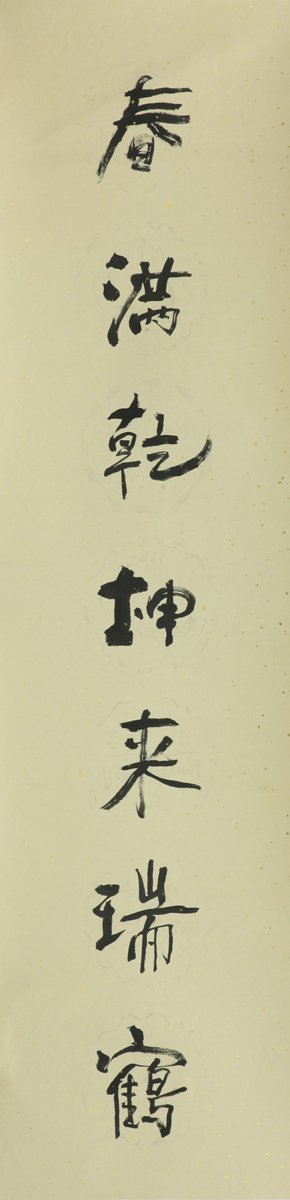 春满乾坤来瑞鹤